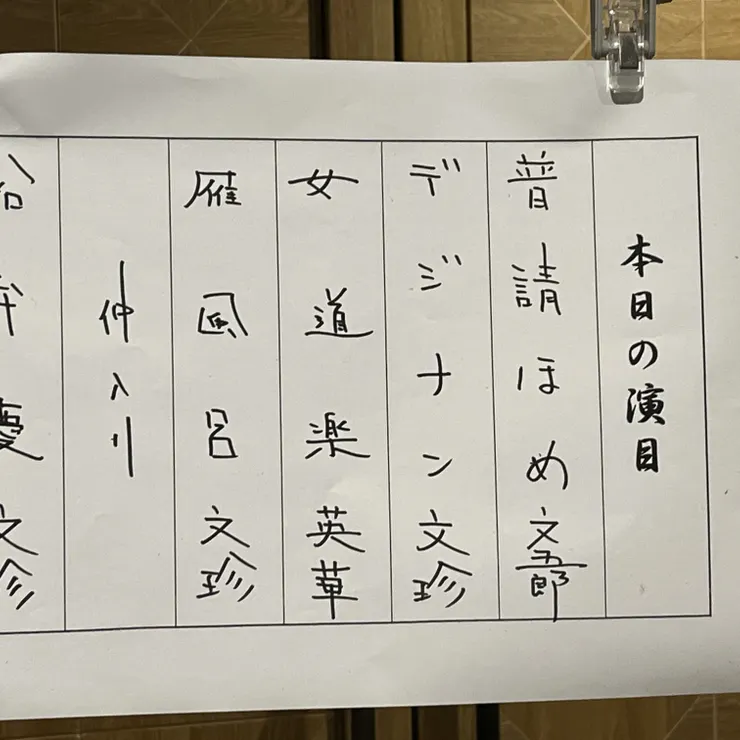 本日の演目
普請ほめ 文五郎
デジナン 文珍
女道楽 英華
雁風呂 文珍
仲入り
船弁慶 文珍